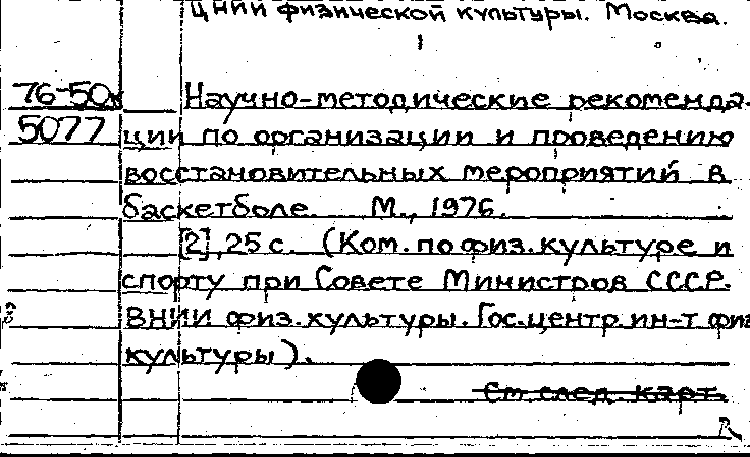 ЦНИИ физической культуры. Москва.
76-50к Научно-методические рекоменда-
5077 ции по организации и проведению
восстановительных мероприятий в
баскетболе. М., 1976.
[2], 25 с. (Ком. по физ. культуре и
спорту при Совете Министров СССР.
ВНИИ физ. культуры. Гос. центр. ин-т физ
культуры).
См. след. карт.